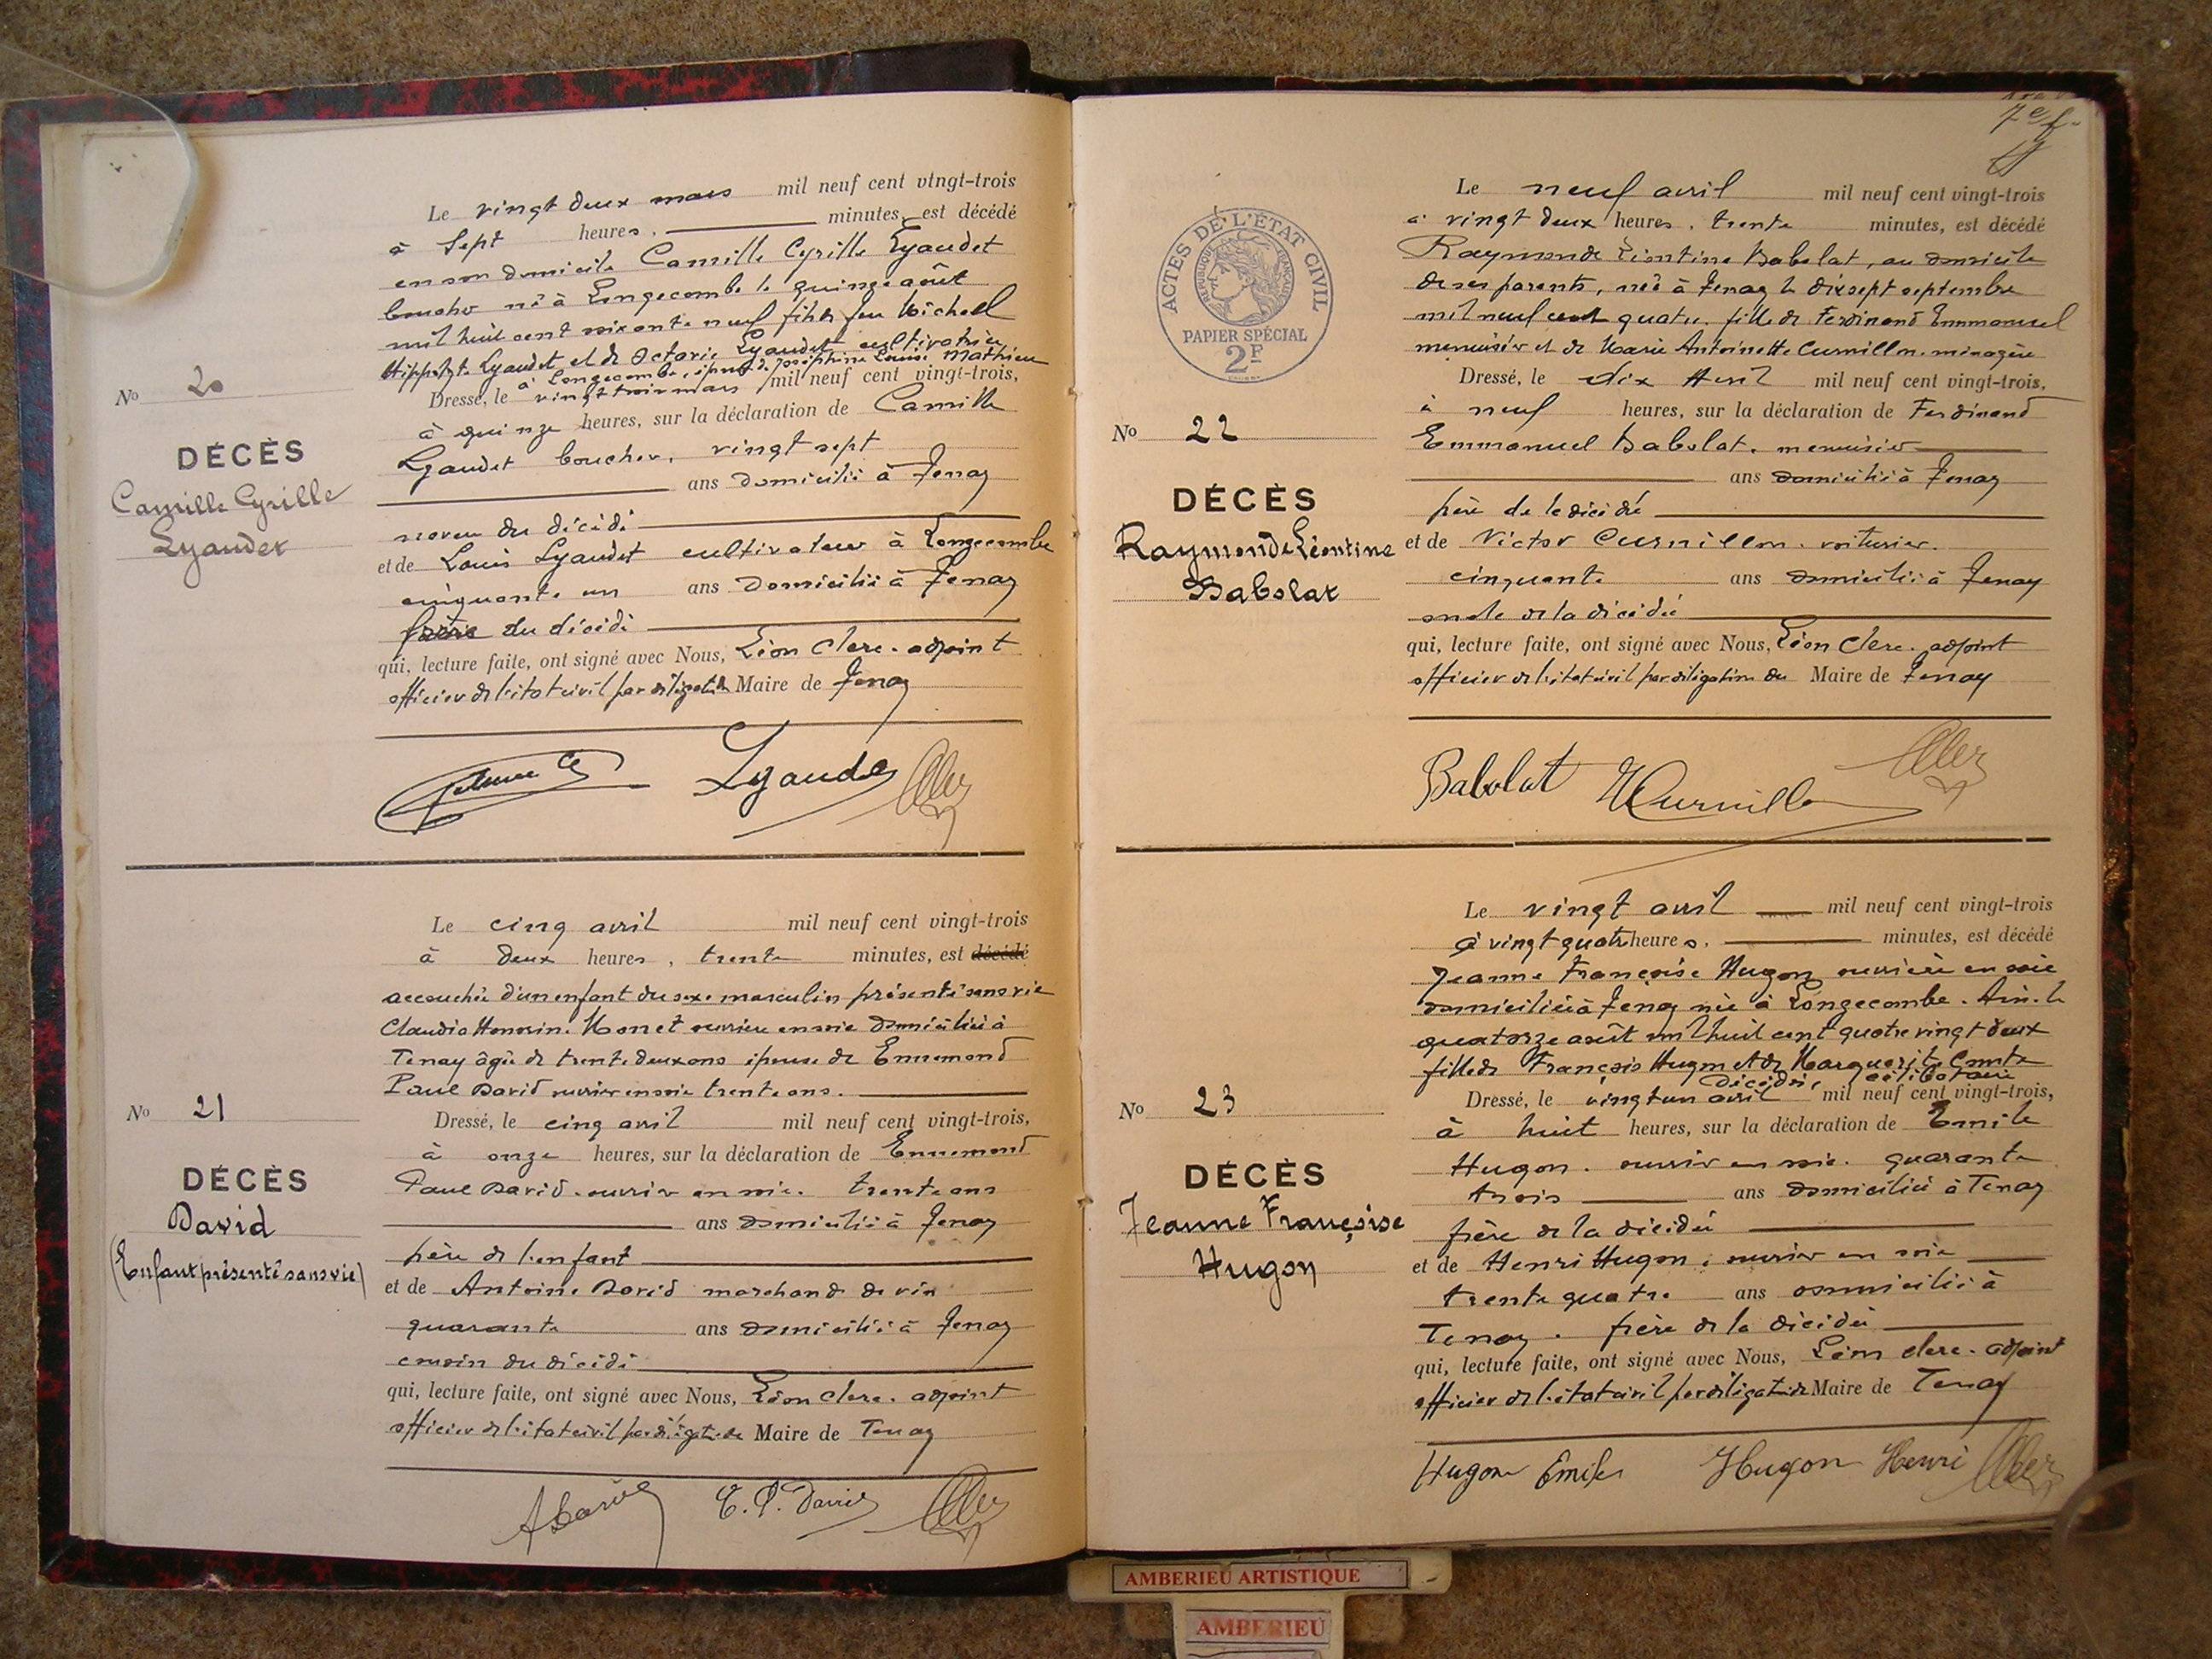 Le vingt deux mars mil neuf cent vingt-trois
à Sept heures, minutes, est décédé
en son domicile Camille Cyrille Lyaudet
boucher né à Longecombe le quinze août
mil huit cent soixante neuf fils de feu Michel
Hippolyte Lyaudet et de Octavie Lyaudet cultivatrice
à Longecombe, époux de Joséphine Louise Mathieu
Dressé, le vingt trois mars mil neuf cent vingt-trois,
à quinze heures, sur la déclaration de Camille
Lyaudet boucher, vingt sept
ans domicilié à Tenay
neveu du décédé
et de Louis Lyaudet cultivateur à Longecombe
cinquante un ans domicilié à Tenay
frère du décédé
qui, lecture faite, ont signé avec Nous, Léon Clerc. adjoint
officier de l'état civil par délégation du Maire de Tenay
No 20
DÉCÈS
Camille Cyrille
Lyaudet
Lyaudet
Le cinq avril mil neuf cent vingt-trois
à deux heures, trente minutes, est décédé
accouchée d'un enfant du sexe masculin présenté sans vie
Claudia Honorine Monet ouvrière en soie domiciliée à
Tenay âgée de trente deux ans épouse de Ennemond
Paul David ouvrier en soie trente ans.
Dressé, le cinq avril mil neuf cent vingt-trois,
à onze heures, sur la déclaration de Ennemond
Paul David. ouvrier en soie. trente ans
ans domicilié à Tenay
père de l'enfant
et de Antoine David marchand de vin
quarante ans domicilié à Tenay
cousin du décédé
qui, lecture faite, ont signé avec Nous, Léon Clerc. adjoint
officier de l'état civil par délégation du Maire de Tenay
No 21
DÉCÈS
David
(Enfant présenté sans vie)
A David E. P. David
7e f.
ACTES DE L'ÉTAT CIVIL
RÉPUBLIQUE FRANÇAISE
PAPIER SPÉCIAL
2F
Le neuf avril mil neuf cent vingt-trois
à vingt deux heures, trente minutes, est décédé
Raymonde Léontine Babolat, au domicile
de ses parents, née à Tenay le dix sept septembre
mil neuf cent quatre. fille de Ferdinand Emmanuel
menuisier et de Marie Antoinette Curnillon. ménagère
Dressé, le dix Avril mil neuf cent vingt-trois,
à neuf heures, sur la déclaration de Ferdinand
Emmanuel Babolat. menuisier
ans domicilié à Tenay
père de le décédé
et de Victor Curnillon. voiturier.
cinquante ans domicilié à Tenay
oncle de la décédée
qui, lecture faite, ont signé avec Nous, Léon Clerc. adjoint
officier de l'état civil par délégation du Maire de Tenay
No 22
DÉCÈS
Raymonde Léontine
Babolat
Babolat VCurnillon
Le vingt avril mil neuf cent vingt-trois
à vingt quatre heures. minutes, est décédé
Jeanne Françoise Hugon ouvrière en soie
domiciliée à Tenay née à Longecombe. Ain. le
quatorze août mil huit cent quatre vingt deux
fille de François Hugon et de Marguerite Comte
décédés, célibataire
Dressé, le vingt un avril mil neuf cent vingt-trois,
à huit heures, sur la déclaration de Emile
Hugon. ouvrier en soie. quarante
trois ans domicilié à Tenay
frère de la décédée
et de Henri Hugon, ouvrier en soie
trente quatre ans domicilié à
Tenay. frère de la décédée
qui, lecture faite, ont signé avec Nous, Léon Clerc. adjoint
officier de l'état civil par délégation du Maire de Tenay
No 23
DÉCÈS
Jeanne Françoise
Hugon
Hugon Emile Hugon Henri
AMBERIEU ARTISTIQUE
AMBERIEU